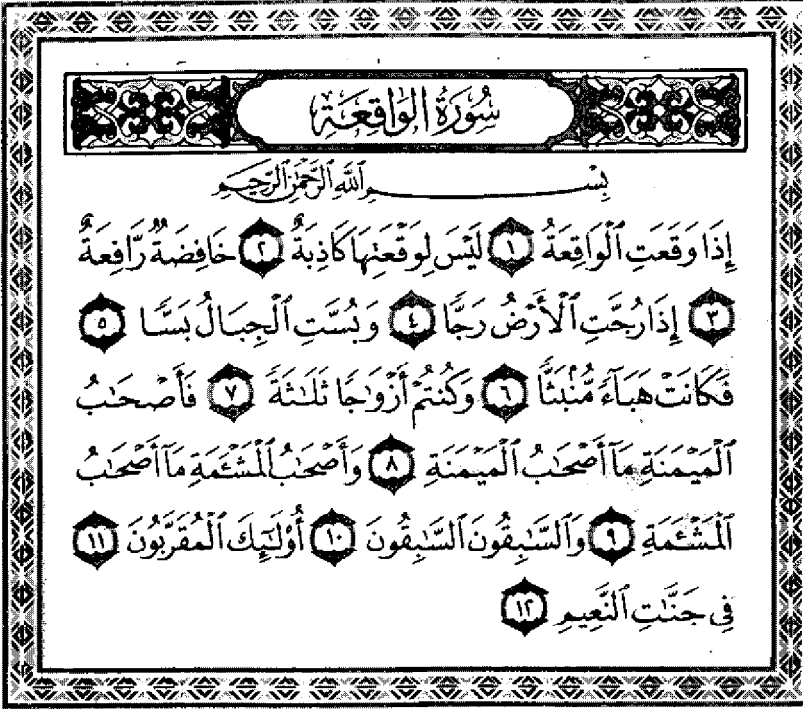 سُورَةُ الوَاقِعَةِ
بِسْمِ ٱللَّهِ ٱلرَّحْمَٰنِ ٱلرَّحِيمِ
إِذَا وَقَعَتِ ٱلْوَاقِعَةُ ١ لَيْسَ لِوَقْعَتِهَا كَاذِبَةٌ ٢ خَافِضَةٌ رَّافِعَةٌ
٣ إِذَا رُجَّتِ ٱلْأَرْضُ رَجًّا ٤ وَبُسَّتِ ٱلْجِبَالُ بَسًّا ٥
فَكَانَتْ هَبَآءً مُّنۢبَثًّا ٦ وَكُنتُمْ أَزْوَٰجًا ثَلَٰثَةً ٧ فَأَصْحَٰبُ
ٱلْمَيْمَنَةِ مَآ أَصْحَٰبُ ٱلْمَيْمَنَةِ ٨ وَأَصْحَٰبُ ٱلْمَشْـَٔمَةِ مَآ أَصْحَٰبُ
ٱلْمَشْـَٔمَةِ ٩ وَٱلسَّٰبِقُونَ ٱلسَّٰبِقُونَ ١٠ أُو۟لَٰٓئِكَ ٱلْمُقَرَّبُونَ ١١
فِى جَنَّٰتِ ٱلنَّعِيمِ ١٢